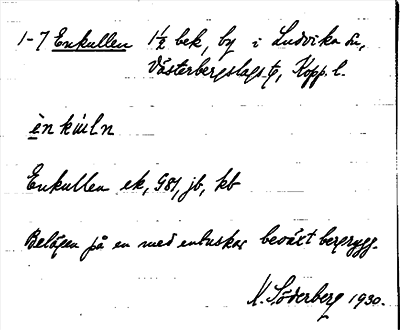 1-7 Enkullen 1½ bek, by i Ludvika sn,
Västerbergslags tg, Kopp. l.
èn kuln
Enkullen ek, G81, jb, kb
Belägen på en med enbuskar beväxt bergrygg.
K. Söderberg 1930.